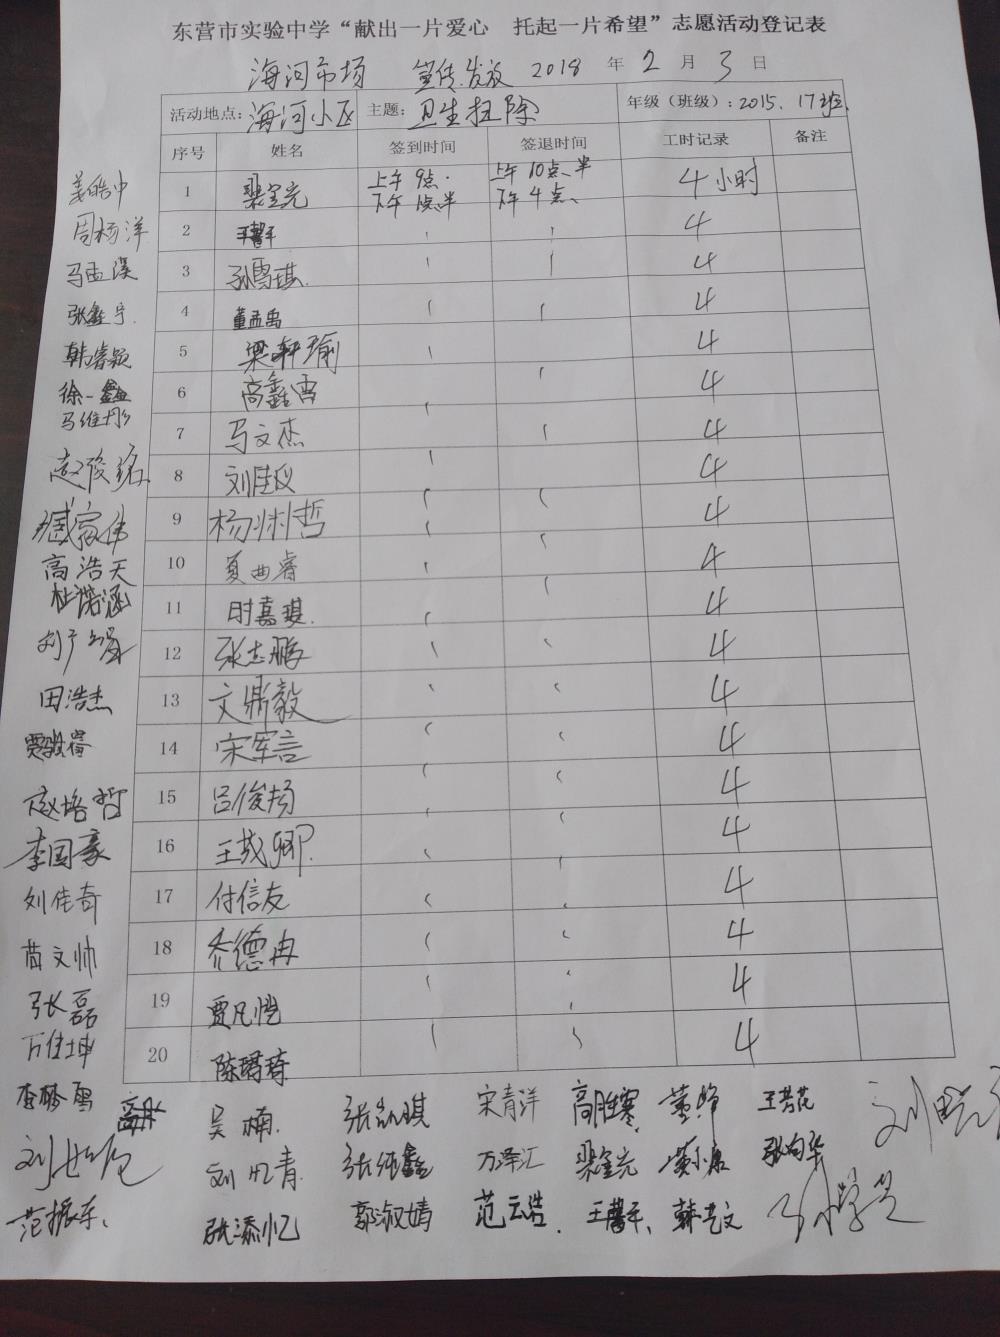 东营市实验中学“献出一片爱心 托起一片希望”志愿活动登记表
海河市场 宣传.发放 2018 年 2 月 3 日
活动地点: 海河小区 主题: 卫生扫除 年级（班级）: 2015. 17班.
序号 姓名 签到时间 签退时间 工时记录 备注
姜皓中 1 上午9点. 上午10点半 4小时
下午1点半 下午4点、
周杨洋 2 王馨平 4
马孟溪 3 孙雪琪. 4
张鑫宁. 4 董孟禹 4
韩睿颖 5 梁轩瑜 4
徐一鑫 6 高鑫雷 4
马维彤
7 马文杰 4
赵俊铭 8 刘佳仪 4
臧家伟 9 杨琳哲 4
高浩天 10 夏曲睿 4
杜诺涵 11 时嘉琪. 4
刘广 12 张志鹏 4
田浩杰 13 文鼎毅 4
贾骏 14 宋军言 4
赵培哲 15 吕俊扬 4
李国豪 16 王 卿. 4
刘佳奇 17 付信友 4
苗文帅 18 乔德冉 4
张磊 19 贾凡恺 4
万佳坤 20 陈珺琦 4
吴楠. 张凯琪 宋青洋 高胜寒. 董婷 王芳花
刘 刘忆青. 张纯鑫 万泽汇 黄小康 张向华
范振东、 张添忆 郭淑婧 范云浩. 王馨平、 韩艺文